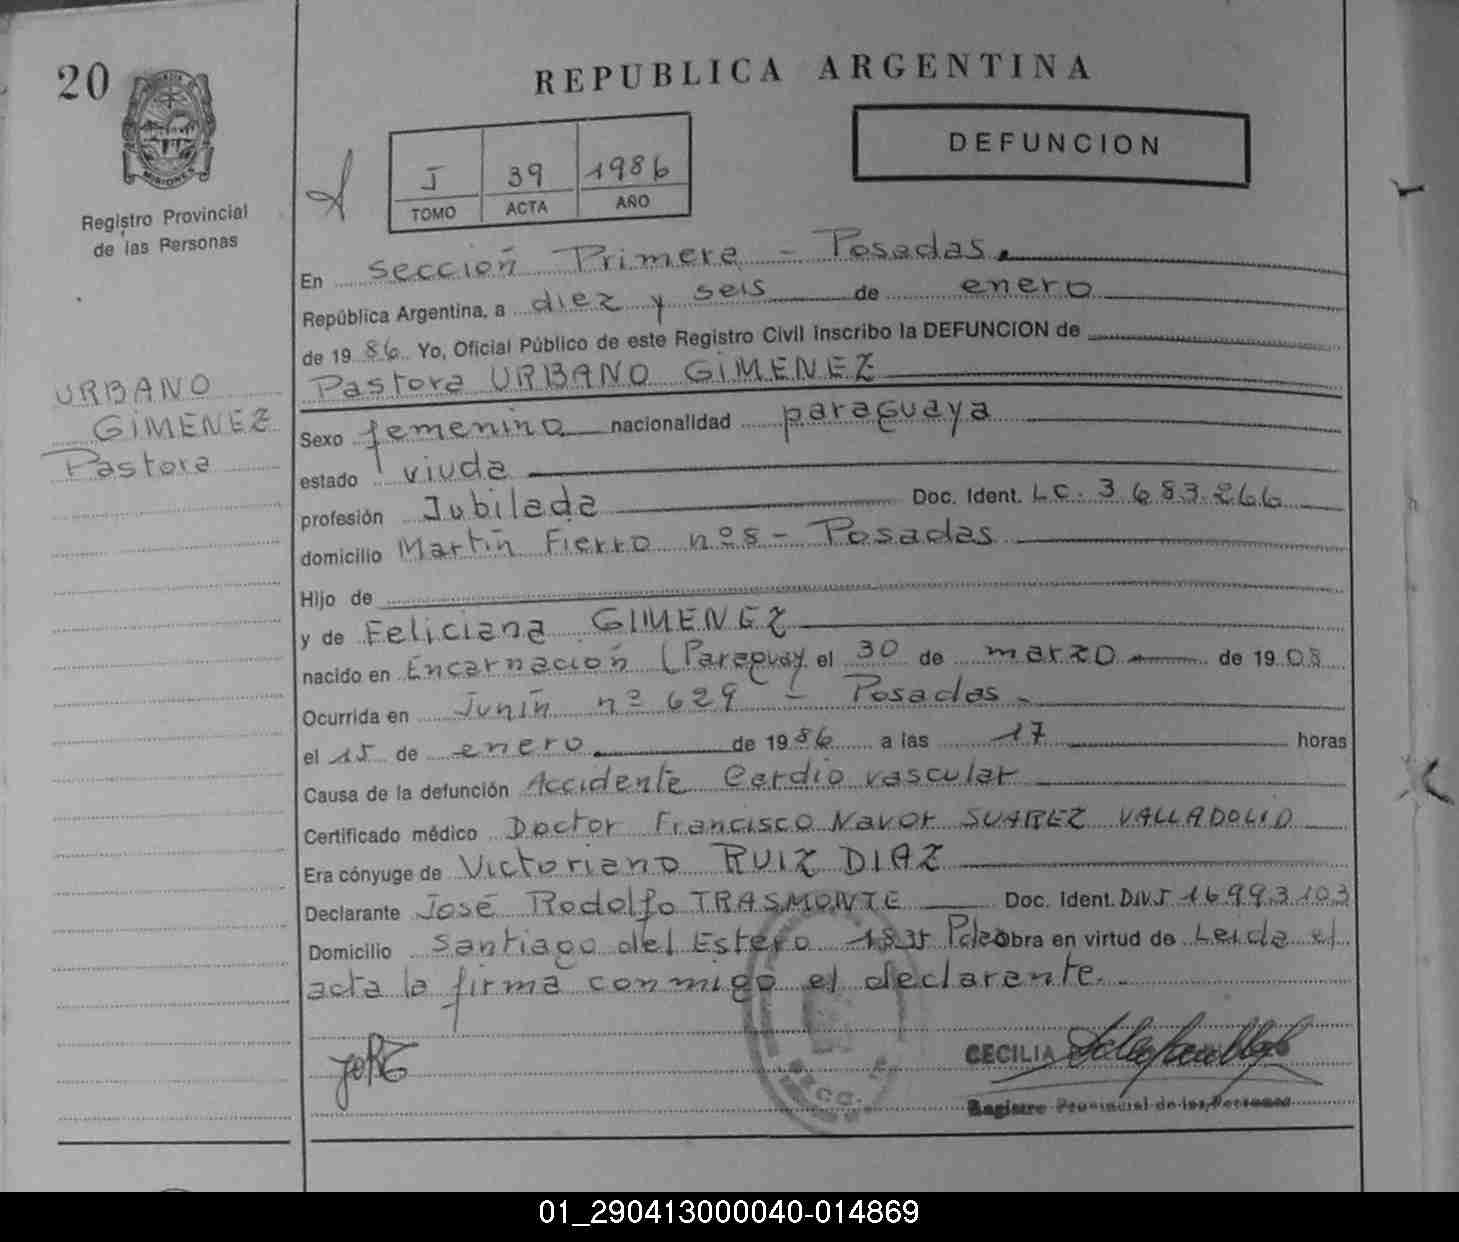 20
REPUBLICA ARGENTINA
DEFUNCION
MISIONES
Registro Provincial
de las Personas
J 39 1986
TOMO ACTA AÑO
En Sección Primera - Posadas.
República Argentina, a diez y seis de enero
de 1986. Yo, Oficial Público de este Registro Civil Inscribo la DEFUNCION de
Pastora URBANO GIMENEZ
URBANO
GIMENEZ
Pastora
Sexo femenino nacionalidad paraguaya
estado viuda
profesión Jubilada Doc. Ident. LC. 3683266
domicilio Martín Fierro nº8 - Posadas
Hijo de
y de Feliciana GIMENEZ
nacido en Encarnación (Paraguay el 30 de marzo de 1908
Ocurrida en Junín nº 629 - Posadas -
el 15 de enero de 1986 a las 17 horas
Causa de la defunción Accidente Cardio vascular
Certificado médico Doctor Francisco Navor SUAREZ VALLADOLID
Era cónyuge de Victoriano RUIZ DIAZ
Declarante José Rodolfo TRASMONTE Doc. Ident. DNI 16993103
Domicilio Santiago del Estero 1835 Pdas Obra en virtud de Leida el
acta la firma conmigo el declarante.
CECILIA
Registro Provincial de las Personas
01_290413000040-014869